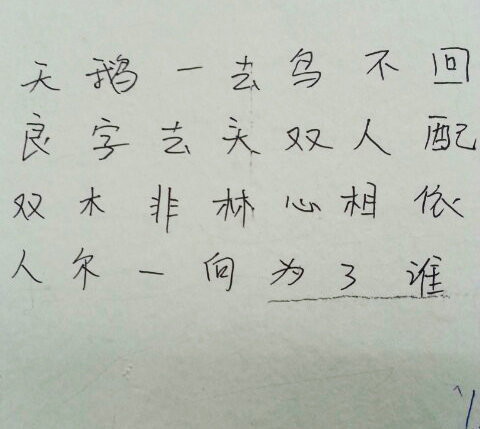 天鹅一去鸟不回
良字去头双人配
双木非林心相依
人尔一向为了谁